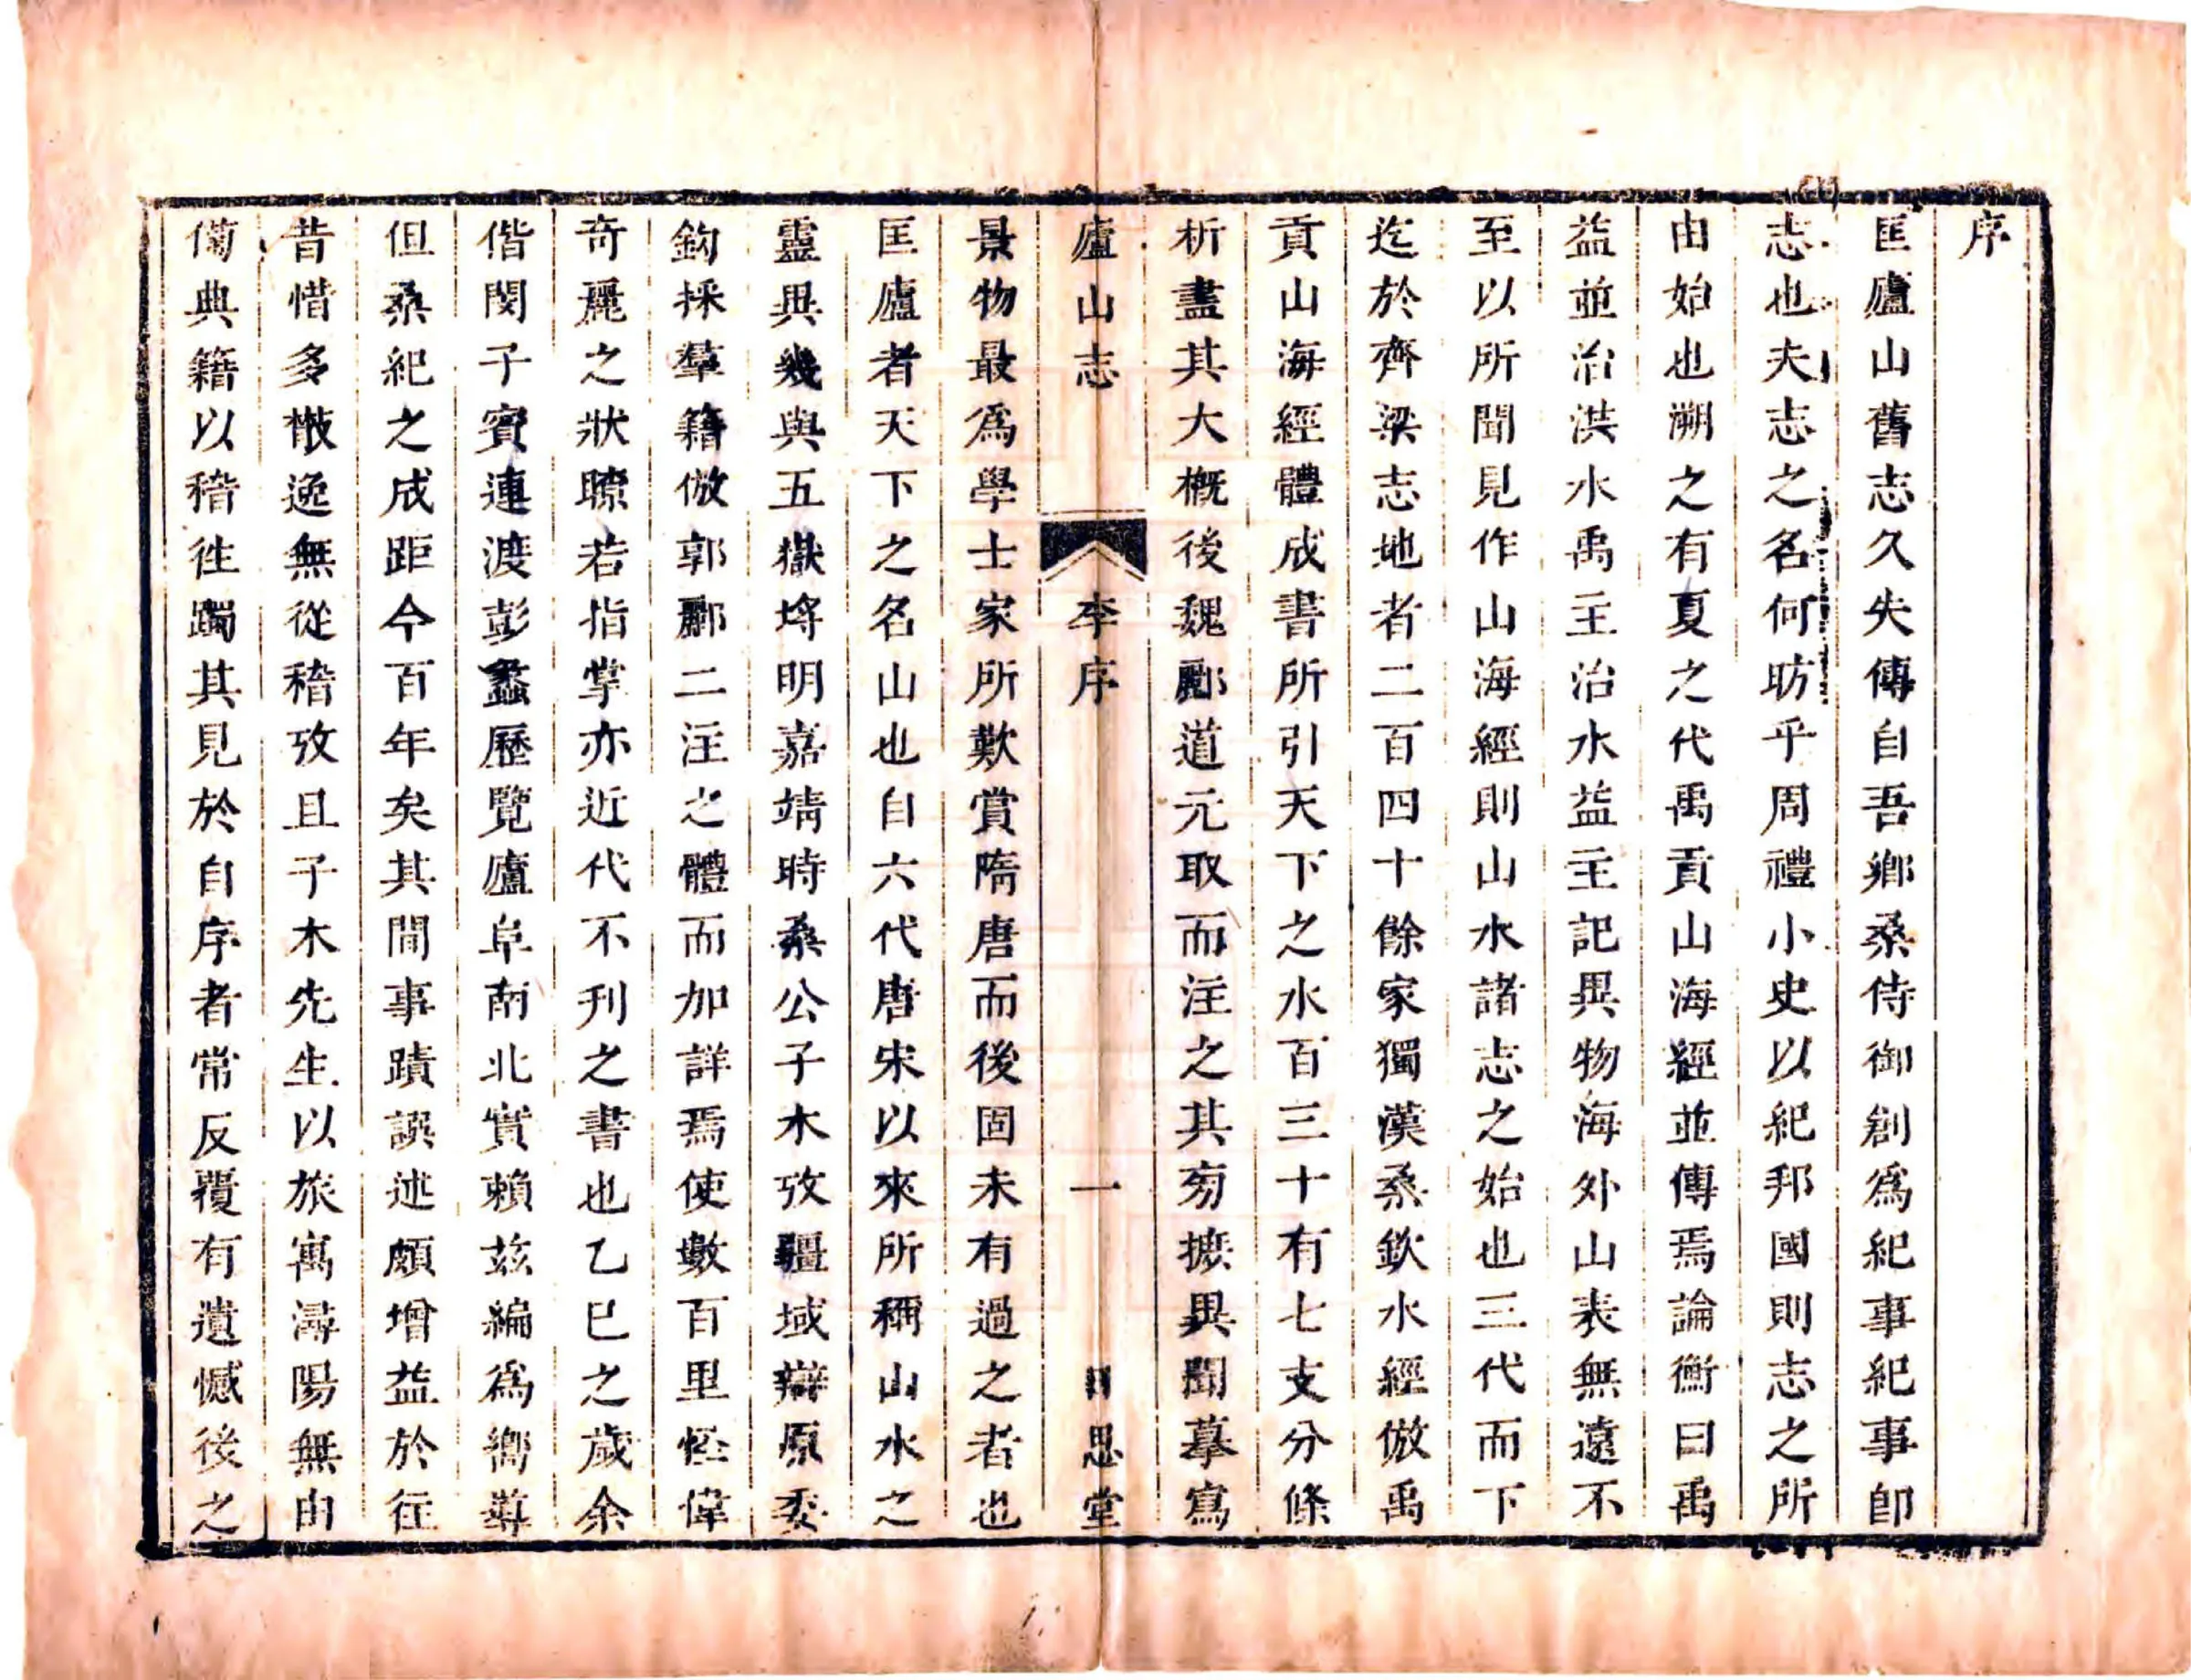 序
匡廬山舊志久失傳自吾鄉桑侍御創爲紀事紀事卽
志也夫志之名何昉乎周禮小史以紀邦國則志之所
由始也溯之有夏之代禹貢山海經並傳焉論衡曰禹
益並治洪水禹主治水益主記異物海外山表無遠不
至以所聞見作山海經則山水諸志之始也三代而下
迄於齊梁志地者二百四十餘家獨漢桑欽水經倣禹
貢山海經體成書所引天下之水百三十有七支分條
析盡其大槪後魏酈道元取而注之其旁摭異聞摹寫
廬山志 李序 一 思堂
景物最爲學士家所歎賞隋唐而後固未有過之者也
匡廬者天下之名山也自六代唐宋以來所稱山水之
靈異幾與五嶽埓明嘉靖時桑公子木攷疆域辯原委
鈎採羣籍倣郭酈二注之體而加詳焉使數百里怪偉
奇麗之狀瞭若指掌亦近代不刋之書也乙巳之歲余
偕閔子賓連渡彭蠡歷覽廬阜南北實賴茲編爲嚮導
但桑紀之成距今百年矣其間事蹟譔述頗增益於徃
昔惜多散逸無從稽攷且子木先生以旅寓潯陽無由
備典籍以稽徃躅其見於自序者常反覆有遺憾後之